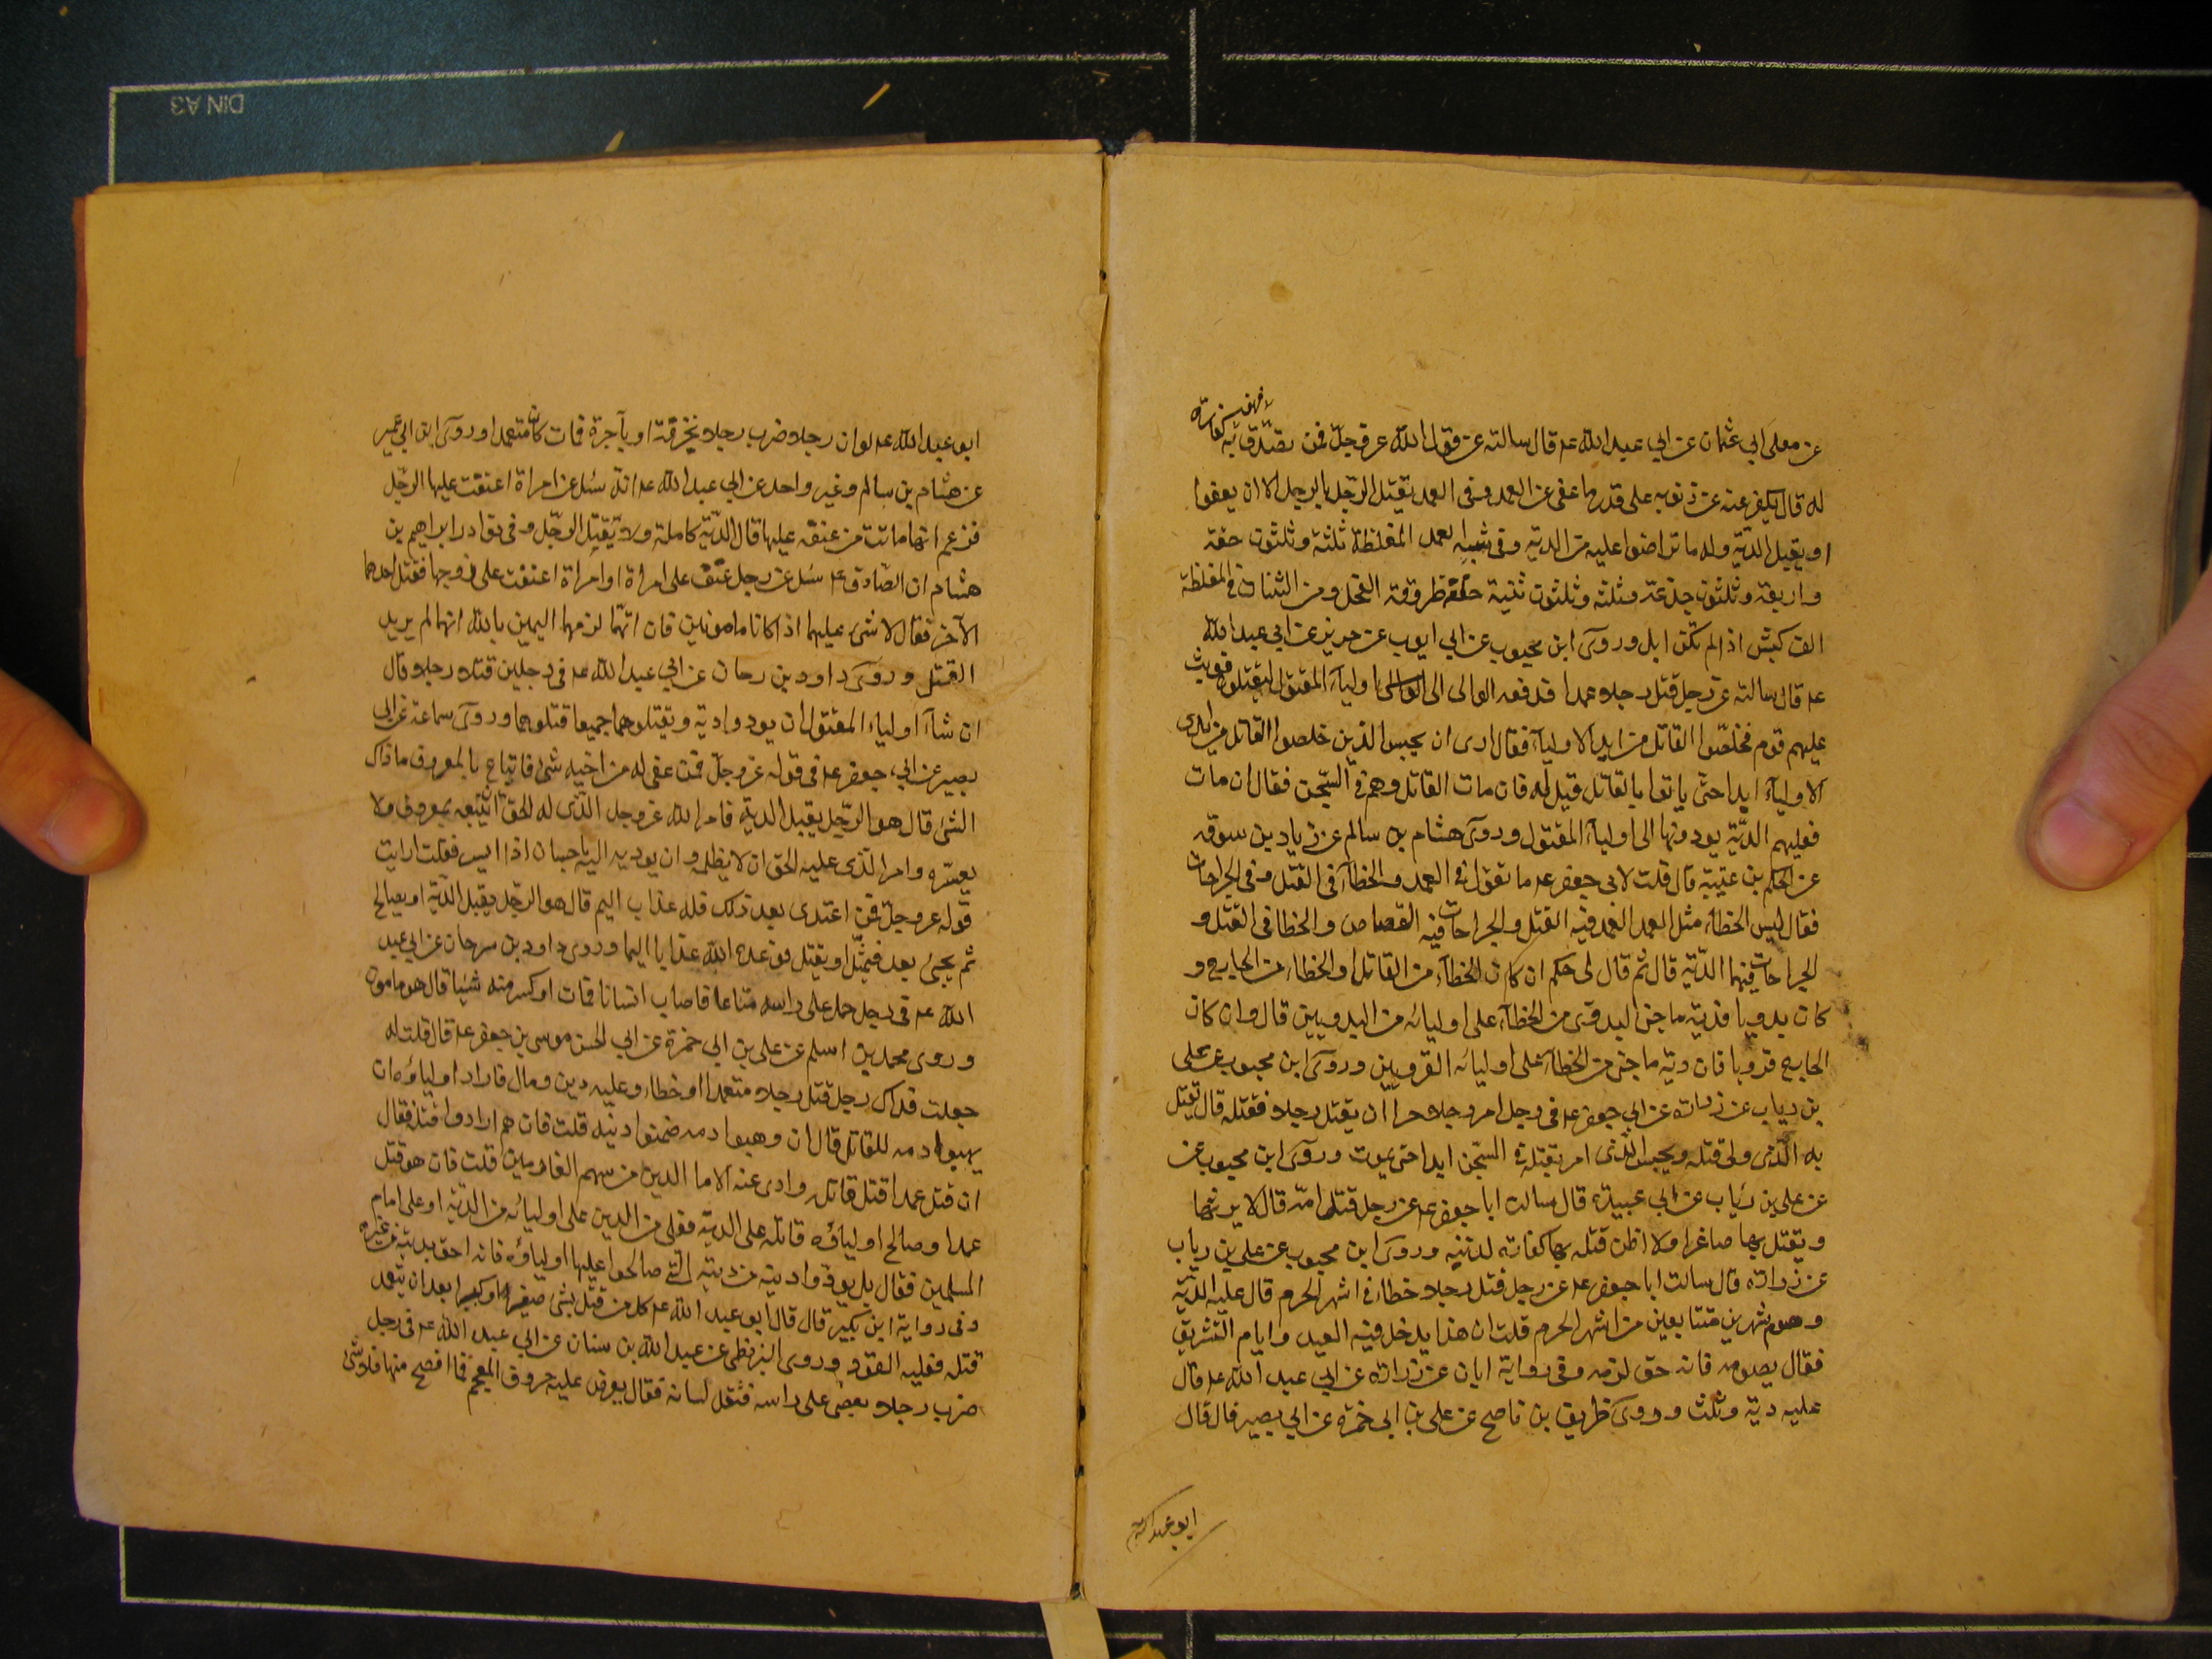 عن معلى ابي عثمان عن ابي عبد الله عم قال سالته عن قول الله عز وجل فمن تصدق به فهو كفارة
له قال يكفر عنه عن ذنوبه على قدر ما عفى عن العمد وفى العمد يقتل الرجل بالرجل الا ان يعفوا
او يقبل الدية وله ما تراضوا عليه من الدية وفى شبه العمد المغلظة ثلثة وثلثون حقة
واربعة وثلثون جذعة وثلثة وثلثون ثنية خلفة طروقة الفحل ومن الثنات في المغلظة
الف كبش اذا لم تكن ابل وروى ابن محبوب عن ابي ايوب عن حريز عن ابي عبد الله
عم قال سالته عن رجل قتل رجلا عمدا فدفعه الوالى الى اولياء المقتول ليقتلوه فوثب
عليهم قوم فخلصوا القاتل من ايدى الاولياء فقال ارى ان يحبس الذين خلصوا القاتل من ايدى
الاولياء ابدا حتى ياتوا بالقاتل قيل له فان مات القاتل وهم في السجن فقال ان مات
فعليهم الدية يودونها الى اولياء المقتول وروى هشام بن سالم عن زياد بن سوقه
عن الحكم بن عتيبة قال قلت لابي جعفر عم ما تقول في العمد والخطآ في القتل وفى الجراحات
فقال ليس الخطاء مثل العمد العمد فيه القتل والجراحات فيه القصاص والخطا فى القتل و
الجراحات فيهما الدية قال ثم قال لى حكم ان كان الخطآء من القاتل او الخطاء من الجارح و
كان بدويا فدية ما جنى البدوى من الخطآء على اوليائه من البدويين قال وان كان
الجارح قرويا فان دية ما جنى من الخطآء على اوليائه القرويين وروى ابن محبوب عن على
بن رياب عن زرارة عن ابي جعفر عم فى رجل امر رجلا حرا ان يقتل رجلا فقتله قال يقتل
به الذى ولى قتله ويحبس الذى امر بقتله في السجن ابدا حتى يموت وروى ابن محبوب عن
عن على بن رئاب عن ابي عبيدة قال سالت ابا جعفر عم عن رجل قتل امه قال لا يرثها
ويقتل بها صاغرا ولا اظن قتله بها كفارة لذنبه وروى ابن محبوب عن على بن رياب
عن زرارة قال سالت ابا جعفر عم عن رجل قتل رجلا خطاء في اشهر الحرم قال عليه الدية
وصوم شهرين متتابعين من اشهر الحرم قلت ان هذا يدخل فيه العيد وايام التشريق
فقال يصومه فانه حق لزمه وفى رواية ابان عن زرارة عن ابي عبد الله عم قال
عليه دية وثلث وروى ظريف بن ناصح عن على بن ابي حمزة عن ابي بصير قال قال
ابو عبد الله
ابو عبد الله عم لو ان رجلا ضرب رجلا بخزفة او بآجرة فمات كان متعمدا وروى ابن ابي عمير
عن هشام بن سالم وغير واحد عن ابي عبد الله عم انه سئل عن امراة اعنفت عليها الرجل
فزعم انها ماتت من عنفه عليها قال الدية كاملة ولا يقتل الرجل وفى نوادر ابراهيم بن
هشام ان الصادق عم سئل عن رجل عنف على امراة او امراة اعنفت على زوجها فقتل احدهما
الآخر فقال لا شىء عليهما اذا كانا مامونين فان اتهما لزمهما اليمين بالله انهما لم يريد
القتل وروى داود بن رحان عن ابي عبد الله عم فى رجلين قتلا رجلا قال
ان شآء اولياء المقتول ان يودوا دية ويقتلوهما جميعا قتلوهما وروى سماعة عن ابى
بصير عن ابي جعفر عم فى قوله عز وجل فمن عفى له من اخيه شىء فاتباع بالمعروف ما ذاك
الشئ قال هو الرجل يقبل الدية فامر الله عز وجل الذى له الحق ان يتبعه بمعروف ولا
يعسره وامر الذى عليه الحق ان لا يظلمه وان يوديه اليه باحسان اذا ايسر فقلت ارايت
قوله عز وجل فمن اعتدى بعد ذلك فله عذاب اليم قال هو الرجل يقبل الدية او يصالح
ثم يجىء بعد فيمثل او يقتل فوعده الله عذابا اليما وروى داود بن سرحان عن ابي عبد
الله عم فى رجل حمل على راسه متاعا فاصاب انسانا فمات او كسر منه شيئا قال هو مامون
وروى محمد بن اسلم عن على بن ابي حمزة عن ابي الحسن موسى بن جعفر عم قال قلت له
جعلت فداك رجل قتل رجلا متعمدا او خطاء وعليه دين ومال فاراد اولياؤه ان
يهبوا دمه للقاتل قال ان وهبوا دمه ضمنوا دينه قلت فان هم ارادوا قتله فقال
ان قتل عمدا قتل قاتله وادى عنه الاما الدين من سهم الغارمين قلت فان هو قتل
عمدا وصالح اولياؤه قاتله على الدية فعلى من الدين على اوليائه من الدية او على امام
المسلمين فقال بل يودوا دينه من ديته التى صالحوا عليها اولياؤه فانه احق بديته من غيره
وفى رواية ابن بكير قال قال ابو عبد الله عم كل من قتل بشئ صغير او كبير بعد ان يتعمد
قتله فعليه القود وروى البزنطى عن عبد الله بن سنان عن ابي عبد الله عم فى رجل
ضرب رجلا بعصى على راسه فثقل لسانه فقال يعرض عليه حروف المعجم فما افصح منها فلا شى